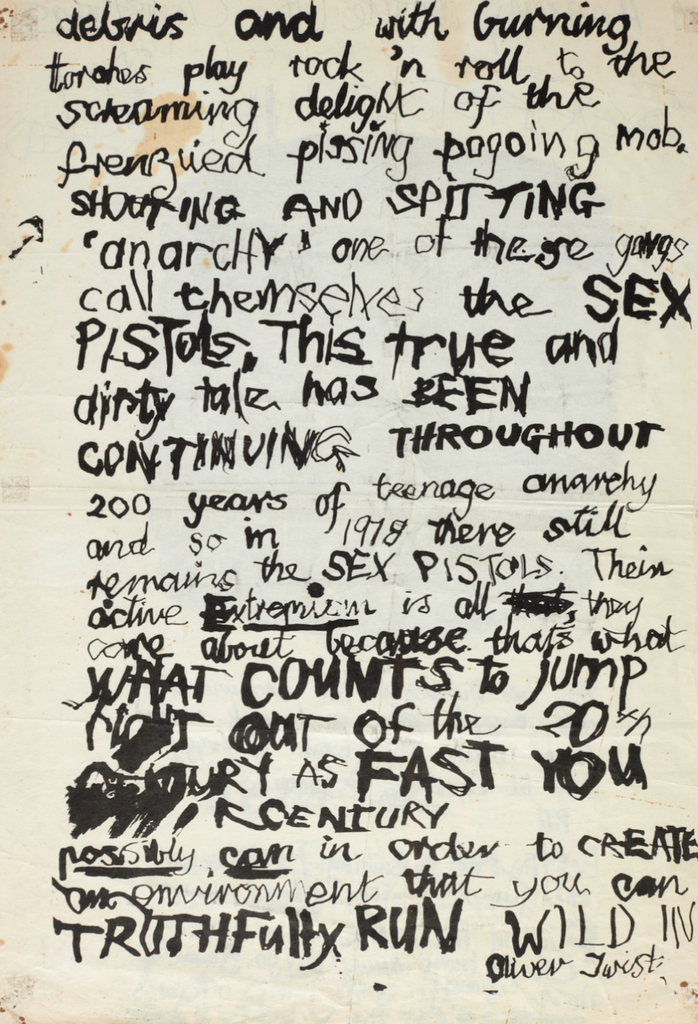 debris and with burning
torches play rock 'n roll to the
screaming delight of the
frenzied pissing pogoing mob.
SHOUTING AND SPITTING
'anarchy' one of these gangs
call themselves the SEX
PISTOLS. This true and
dirty tale has BEEN
CONTINUING THROUGHOUT
200 years of teenage anarchy
and so in 1978 there still
remains the SEX PISTOLS. Their
active Extremism is all they
care about because thats what
WHAT COUNTS to jump
righT OUT of the 20th
CENTURY AS FAST YOU
CENTURY
possibly can in order to CREATE
an environment that you can
TRUTHFully RUN WILD IN
Oliver Twist.